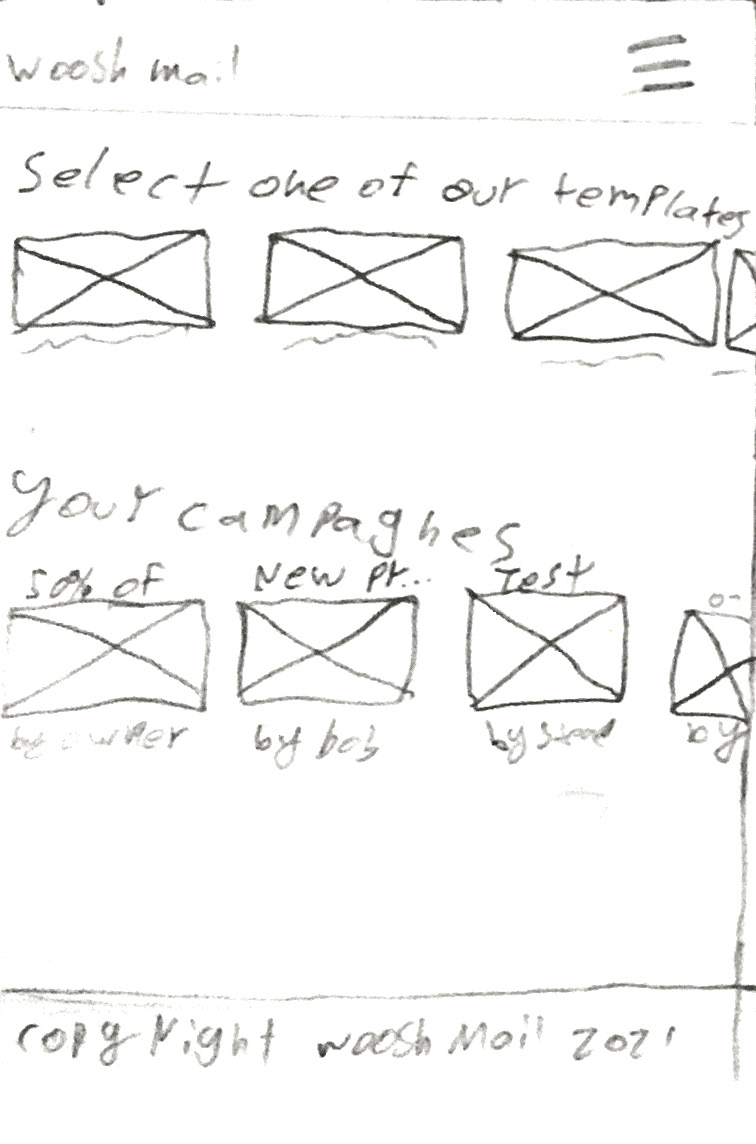 woosh mail
Select one of our templates
Your campaghes
50% of New Pr... Test
by owner by bob by by
copyright woosh Mail 2021